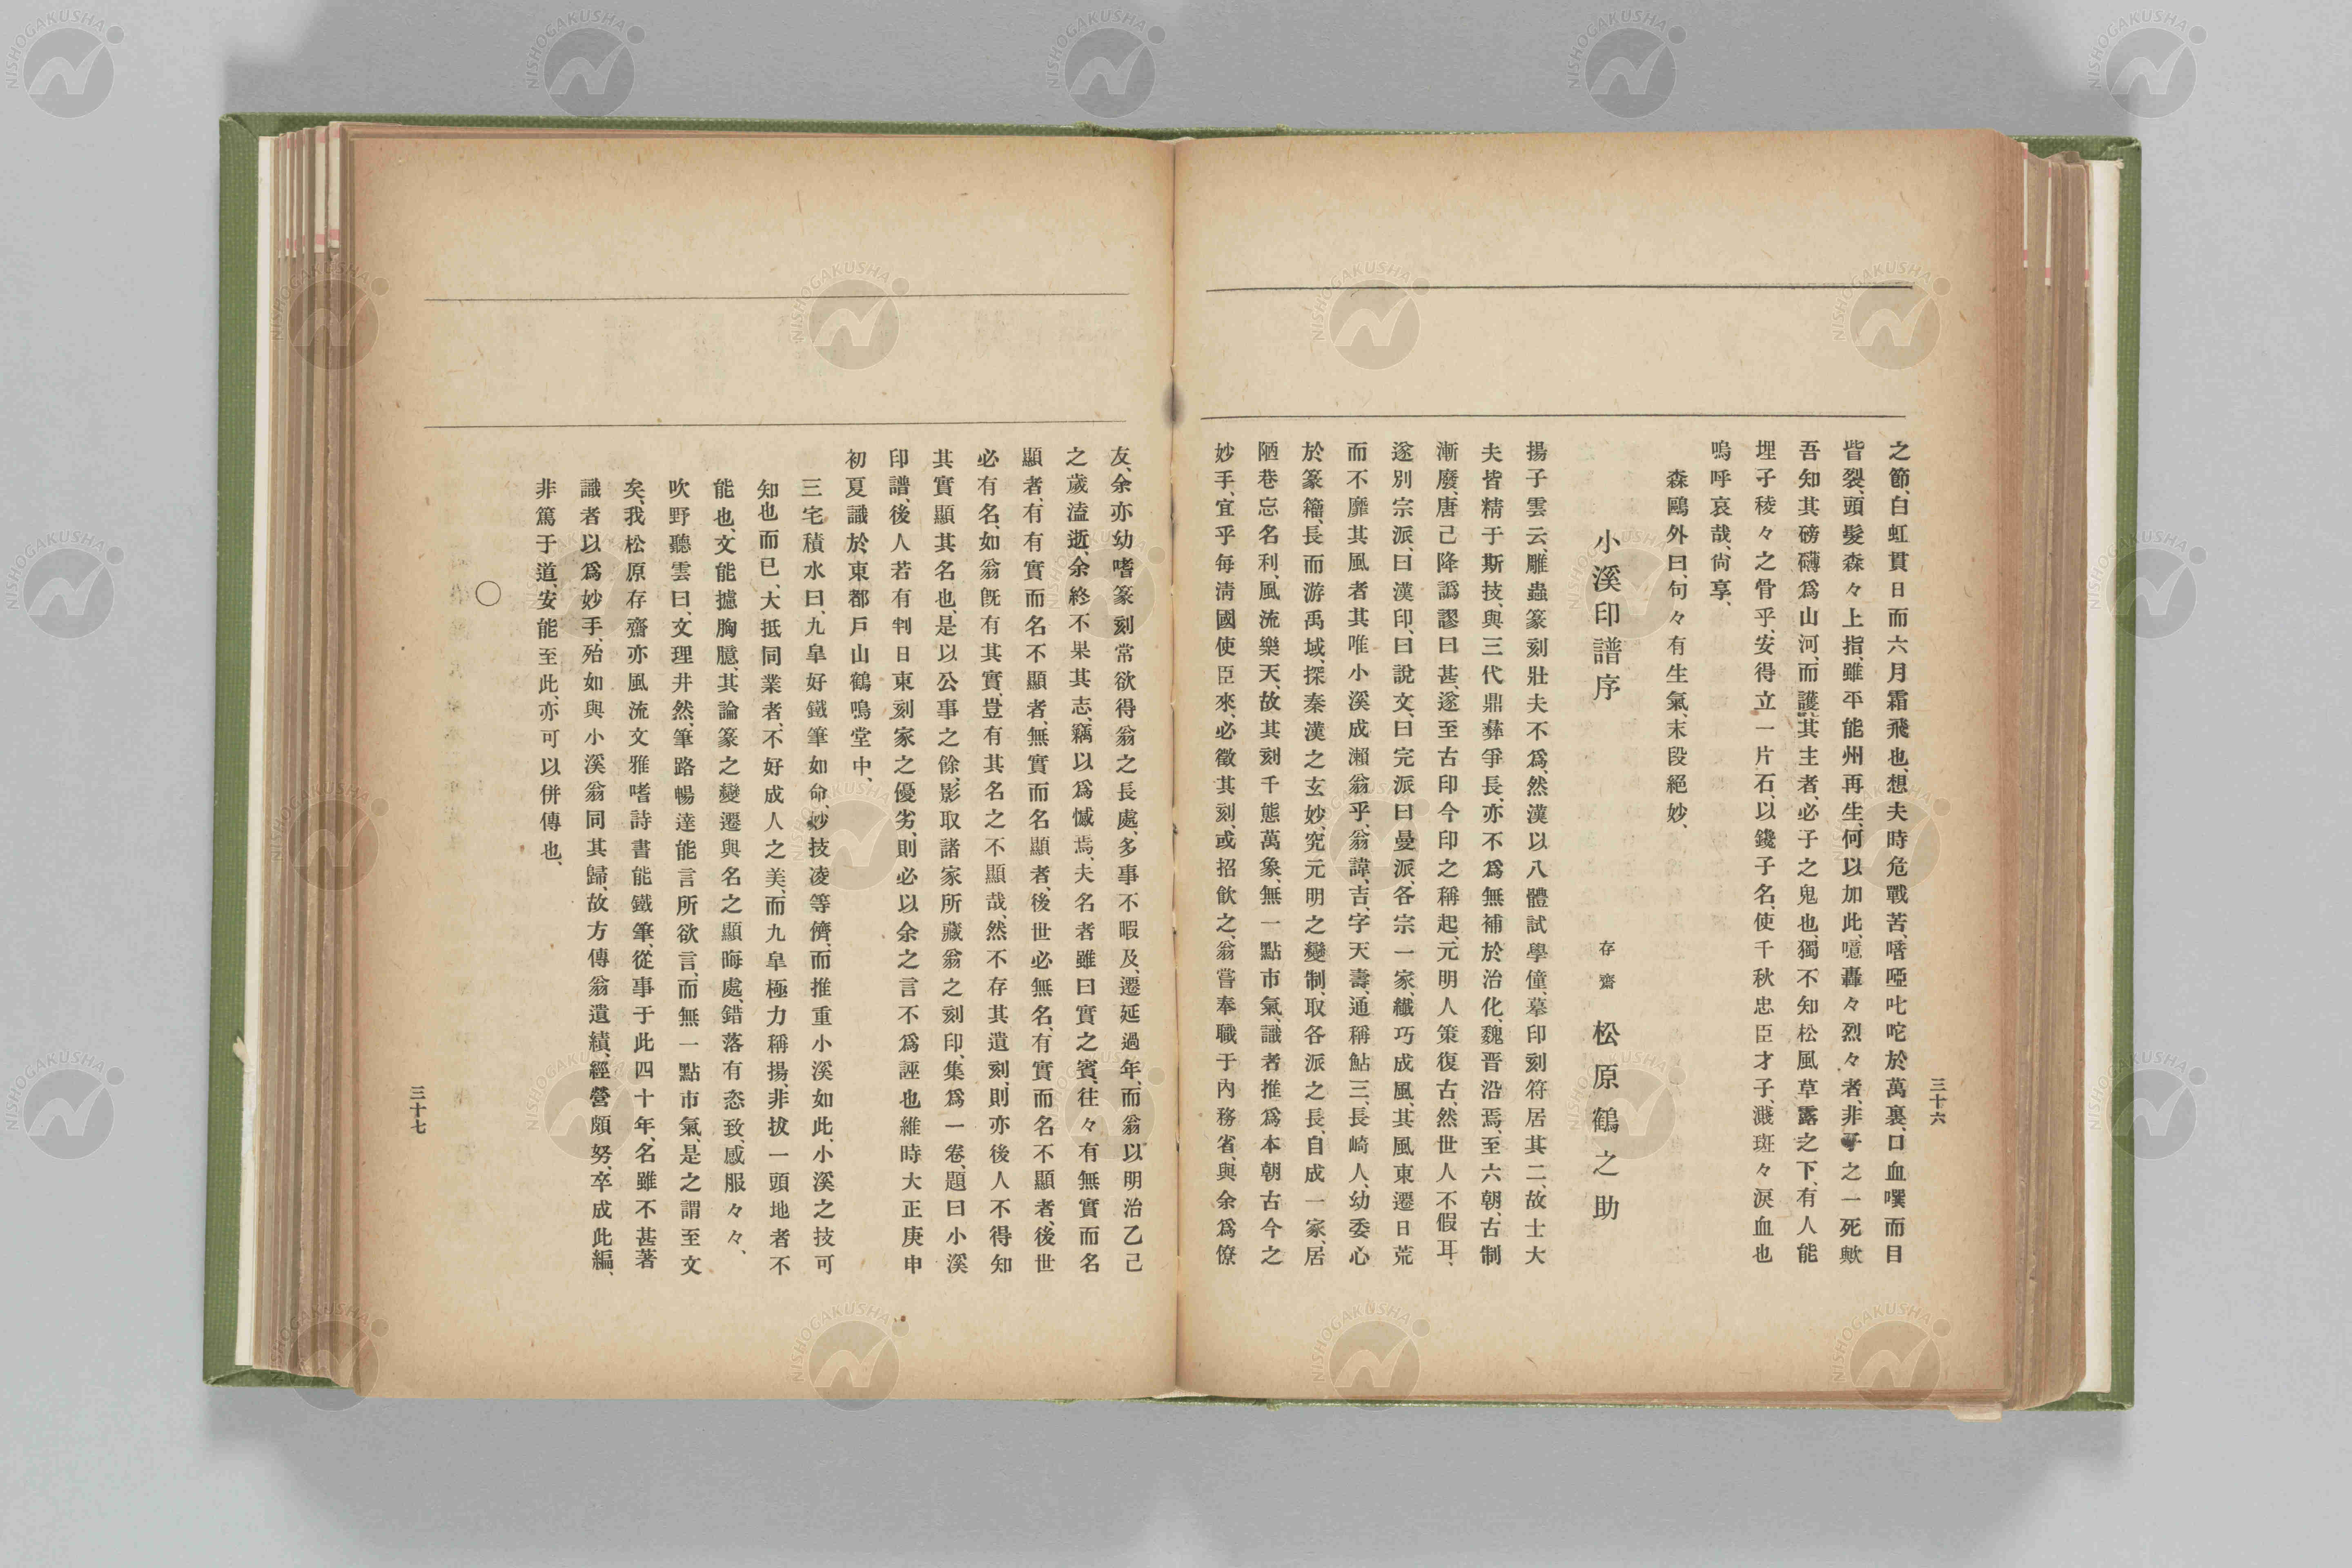 三十六
之節、白虹貫日而六月霜飛也、想夫時危戰苦、喑啞叱咤於萬裏、口血噀而目
眥裂、頭髮森々上指、雖平能州再生、何以加此、噫轟々烈々者、非子之一死歟
吾知其磅礴爲山河、而護其主者、必子之鬼也、獨不知松風草露之下、有人能
埋子稜々之骨乎、安得立一片石、以鐫子名、使千秋忠臣才子、濺斑々淚血也
嗚呼哀哉、尙享、
森鷗外曰、句々有生氣、末段絕妙、
小溪印譜序
存齋 松原鶴之助
揚子雲云、雕蟲篆刻壯夫不爲、然漢以八體試學僮、摹印刻符居其二、故士大
夫皆精于斯技、與三代鼎彝爭長、亦不爲無補於治化、魏晋沿焉、至六朝、古制
漸廢、唐已降譌謬曰甚、遂至古印今印之稱起、元明人策復古、然世人不假耳、
遂別宗派、曰漢印、曰說文、曰完派曰曼派、各宗一家、纖巧成風、其風東遷日荒
而不靡其風者其唯小溪成瀨翁乎、翁諱吉、字天壽、通稱鮎三、長崎人、幼委心
於篆籀、長而游禹域、探秦漢之玄妙、究元明之變制、取各派之長、自成一家、居
陋巷忘名利、風流樂天、故其刻千態萬象、無一點市氣、識者推爲本朝古今之
妙手、宜乎每淸國使臣來、必徵其刻、或招飮之、翁嘗奉職于內務省、與余爲僚
友、余亦幼嗜篆刻常欲得翁之長處、多事不暇及、遷延過年、而翁以明治乙已
之歲溘逝、余終不果其志、竊以爲憾焉、夫名者雖曰實之賓、往々有無實而名
顯者、有有實而名不顯者、無實而名顯者、後世必無名、有實而名不顯者、後世
必有名、如翁旣有其實、豈有其名之不顯哉、然不存其遺刻、則亦後人不得知
其實顯其名也、是以公事之餘、影取諸家所藏翁之刻印、集爲一卷、題曰小溪
印譜、後人若有判日東刻家之優劣、則必以余之言不爲誣也維時大正庚申
初夏識於東都戶山鶴鳴堂中、
三宅積水曰、九皐好鐵筆如命、妙技凌等儕、而推重小溪如此、小溪之技可
知也而已、大抵同業者、不好成人之美、而九皐極力稱揚、非拔一頭地者不
能也、文能攄胸臆、其論篆之變遷與名之顯晦處、錯落有恣致、感服々々、
吹野聽雲曰、文理井然、筆路暢達能言所欲言、而無一點市氣、是之謂至文
矣、我松原存齋亦風流文雅嗜詩書能鐵筆、從事于此四十年、名雖不甚著
識者以爲妙手、殆如與小溪翁同其歸、故方傳翁遺績、經營頗努、卒成此編、
非篤于道、安能至此、亦可以倂傳也、
○
三十七